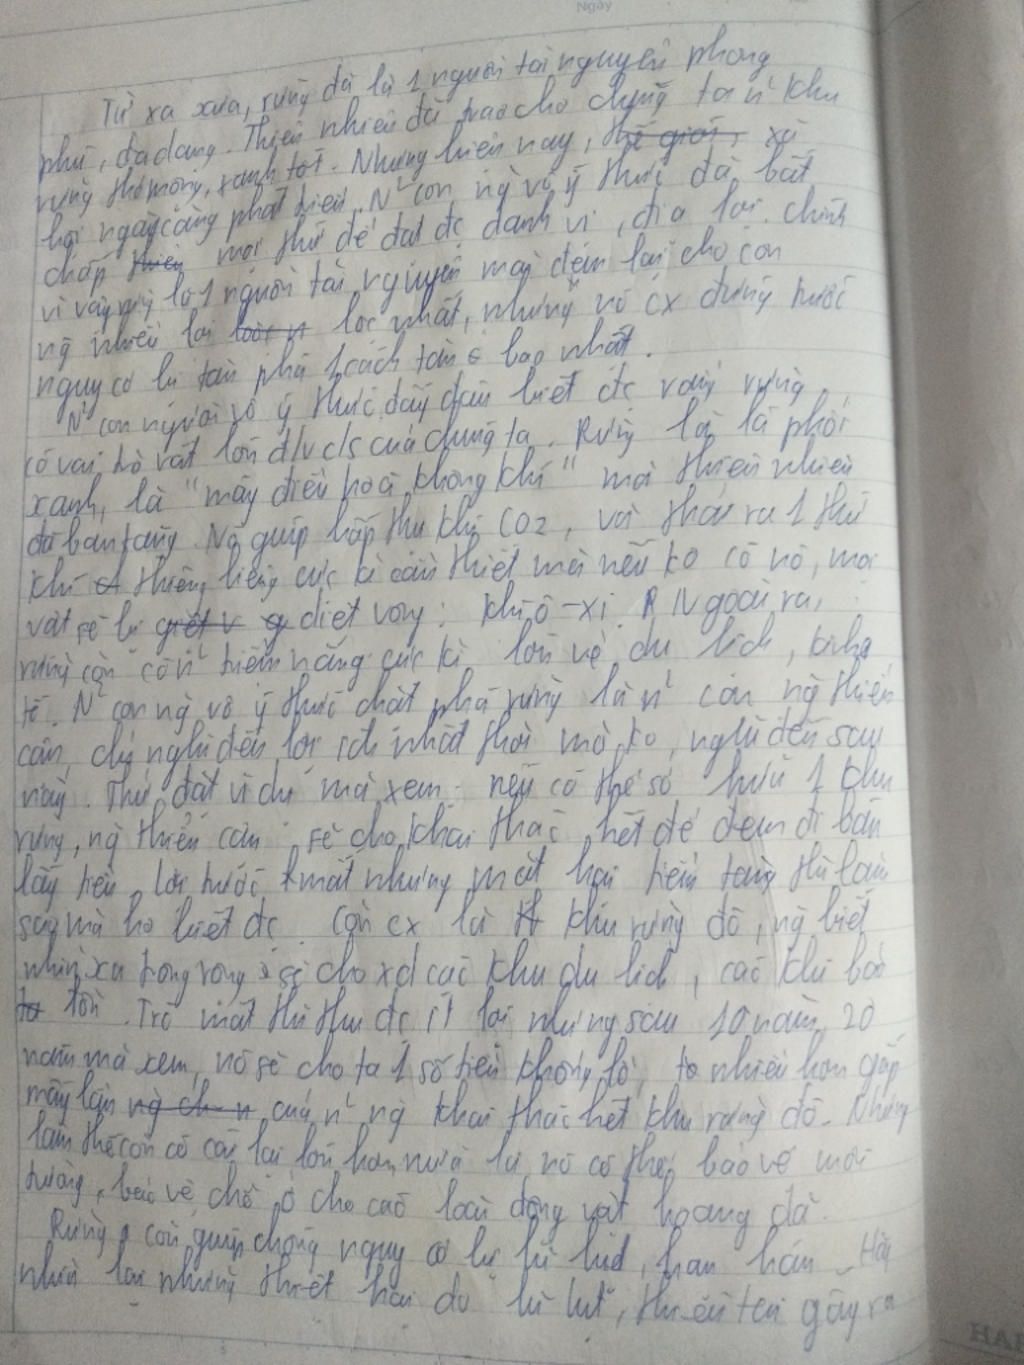 Ngày
Từ xa xưa, rừng đã là 1 nguồn tài nguyên phong
phú, đa dạng. Thiên nhiên đã trao cho chúng ta n' khu
rừng thơ mộng, xanh tốt. Nhưng hiện nay, thế giới, xã
hội ngày càng phát triển. N' con ng vô ý thức đã bất
chấp mọi thứ để đạt đc danh vị, địa lợi. Chính
vì vậy, rừng là 1 nguồn tài nguyên mang đem lại cho con
ng nhiều lợi lộc nhất, nhưng nó cx đứng trước
nguy cơ bị tàn phá 1 cách tàn bạo nhất.
N' con người vô ý thức đấy đâu biết đc rằng rừng
có vai trò rất lớn đ/v c/s của chúng ta. Rừng là lá phổi
xanh, là "máy điều hoà không khí" mà thiên nhiên
đã ban tặng. Nó giúp hấp thu khí CO2, và thải ra 1 thứ
khí thiêng liêng cực kì cần thiết mà nếu ko có nó, mọi
vật sẽ bị diệt vong: khí ô-xi. Ngoài ra,
rừng còn có n' tiềm năng cực kì lớn về du lịch, kinh
tế. N' con ng vô ý thức chặt phá rừng là n' con ng thiển
cận, chỉ nghĩ đến lợi ích nhất thời mà ko nghĩ đến sau
này. Thử đặt ví dụ mà xem: nếu có thể sở hữu 1 khu
rừng, ng thiển cận sẽ cho khai thác hết để đem đi bán
lấy tiền, lợi trước mắt nhưng mặt hại tiềm tàng thì làm
sao mà họ biết đc. Còn cx là khu rừng đó, ng biết
nhìn xa trông rộng sẽ cho xd các khu du lịch, các khu bảo
tồn. Trc mắt thì thu đc ít lợi nhưng sau 10 năm, 20
năm mà xem, nó sẽ cho ta 1 số tiền khổng lồ, nhiều hơn gấp
mấy lần của n' ng khai thác hết khu rừng đó. Nhưng
làm thế còn có cái lợi lớn hơn nữa là nó có thể bảo vệ môi
trường, bảo vệ chỗ ở cho các loài động vật hoang dã.
Rừng còn giúp chống nguy cơ bị lũ lụt, hạn hán. Hãy
nhìn lại những thiệt hại do lũ lụt, thiên tai gây ra
HAR